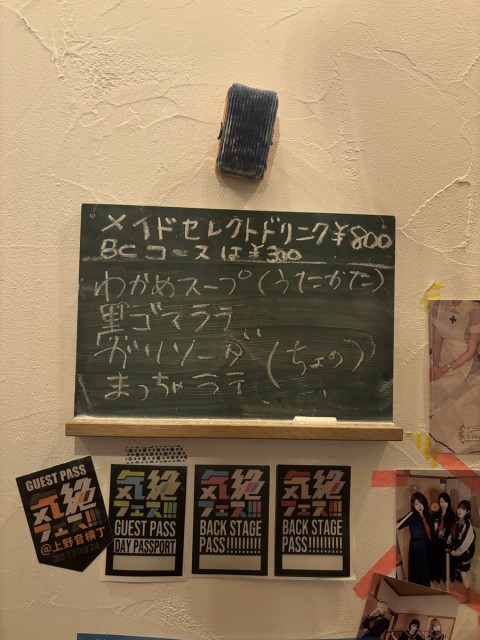 メイドセレクトドリンク¥800
BCコースは¥300
わかめスープ(うたかた)
黒ゴマララ
ガリソーダ(ちょの)
まっちゃラテ
GUEST PASS
気絶
フェス!!!
@上野音横丁
気絶
フェス!!!
GUEST PASS
DAY PASSPORT
気絶
フェス!!!
BACK STAGE
PASS!!!!!!!!!
気絶
フェス!!!
BACK STAGE
PASS!!!!!!!!!